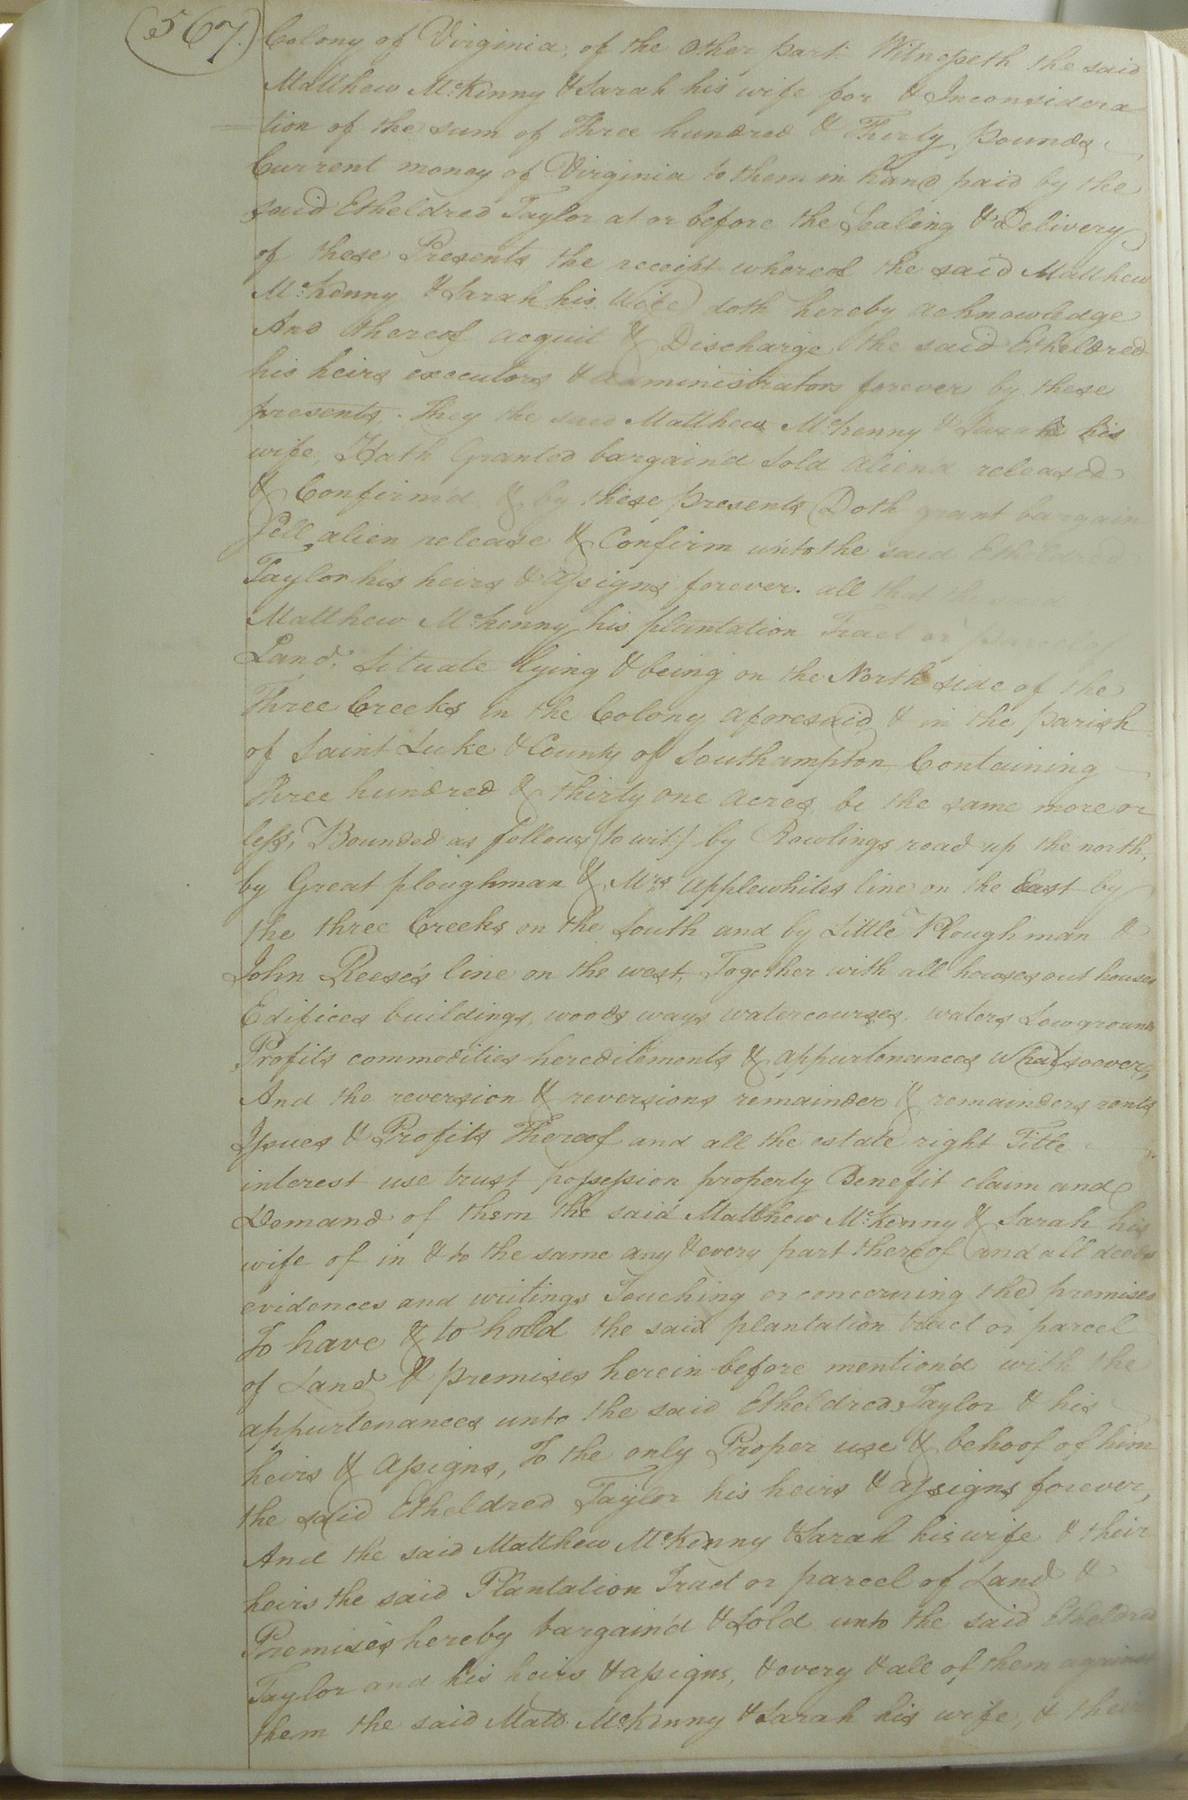 (567.)
Colony of Virginia, of the Other part. Witnesseth the said
Matthew McKinny & Sarah his wife for & Inconsidera
tion of the sum of Three hundred & Thirty, pounds
Current money of Virginia to them in hand paid by the
said Etheldred Taylor at or before the Sealing & Delivery
of these Presents the receipt whereof the said Matthew
McKenny & Sarah his Wife doth hereby acknowledge
And thereof acquit & Discharge the said Etheldred
his heirs executors & administrators forever by these
presents. They the said Matthew McKenny & Sarah his
wife, Hath Granted bargain'd Sold alien'd released
& Confirm'd & by these presents Doth grant bargain
Sell alien release & Confirm unto the said Etheldred
Taylor his heirs & assigns forever. all that
Matthew McKenny his plantation Tract or parcel of
Land, Situate lying & being on the North side of the
Three Creeks in the Colony aforesaid & in the parish
of Saint Luke & County of Southampton Containing
three hundred & thirty one acres be the same more or
less, Bounded as follows (to wit) by Rowlings road up the north,
by Great ploughman & Mrs Applewhites line on the East by
the three Creeks on the South and by Little Ploughman &
John Reese's line on the west, Together with all houses out houses
Edifices buildings, woods ways watercourses, waters Lowgrounds
Profits commodities hereditements & appurtenances whatsoever,
And the reversion & reversions remainder & remainders rents
Issues & Profits Thereof and all the estate right Title
interest use trust possession property Benefit claim and
Demand of them the said Matthew McKenny & Sarah his
wife of in & to the same any & every part thereof and all deeds
evidences and writings Touching or concerning the premises
To have & to hold the said plantation tract or parcel
of Land & premises herein before mention'd with the
appurtenances unto the said Etheldred Taylor & his
heirs & assigns, To the only Proper use & behoof of him
the said Etheldred Taylor his heirs & assigns forever,
And the said Matthew McKenny & Sarah his wife & their
heirs the said Plantation Tract or parcel of Land &
Premises hereby bargain'd & Sold unto the said Etheldred
Taylor and his heirs & assigns, & every & all of them against
them the said Matt. McKinny & Sarah his wife, & their